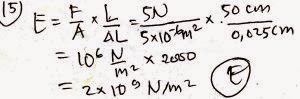 15) E = F/A × L/ΔL = 5N/5×10⁻⁶m² × .50 cm/0,025cm
= 10⁶ N/m² × 2000
= 2×10⁹ N/m² (E)